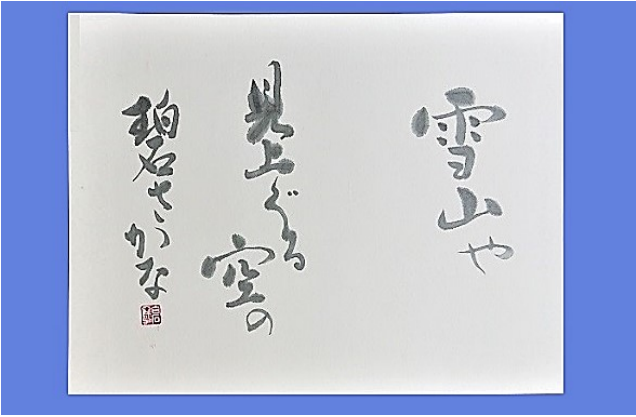 雪山や
見上ぐる空の
碧さかな